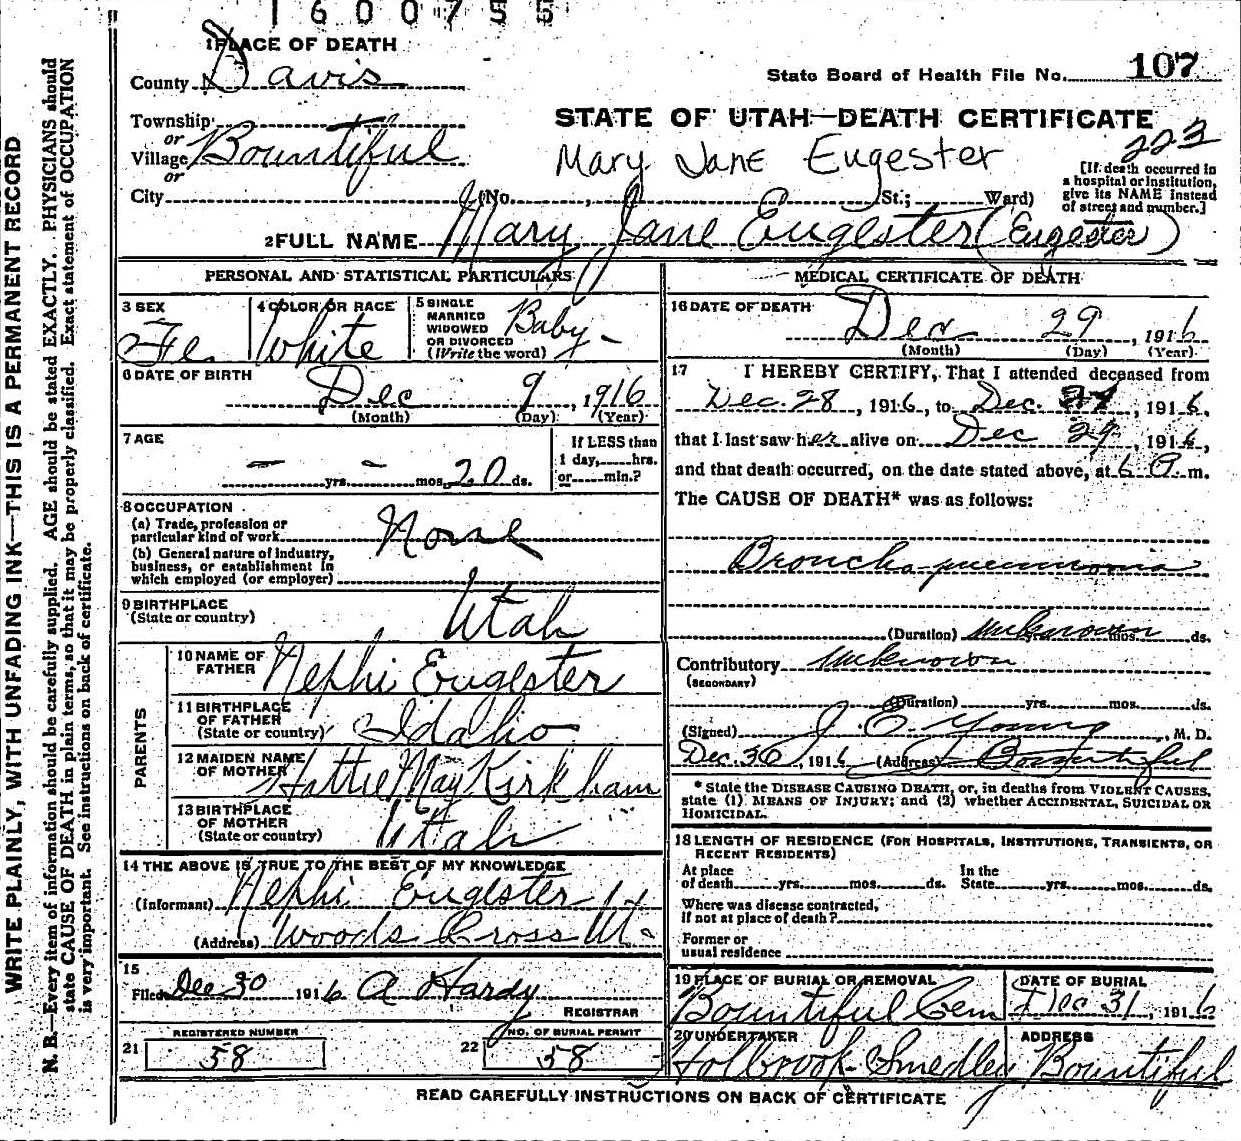 1600755
1 PLACE OF DEATH
County Davis
State Board of Health File No. 107
Township
or
Village Bountiful
or
City
STATE OF UTAH—DEATH CERTIFICATE
223
Mary Jane Eugester
[If death occurred in
a hospital or institution,
give its NAME instead
of street and number.]
(No. , St.; Ward)
2 FULL NAME Mary Jane Eugester (Eugester)
PERSONAL AND STATISTICAL PARTICULARS
3 SEX
Fe.
4 COLOR OR RACE
White
5 SINGLE
MARRIED
WIDOWED
OR DIVORCED
(Write the word)
Baby -
6 DATE OF BIRTH
Dec 9, 1916
(Month) (Day) (Year)
7 AGE
- yrs. - mos. 20 ds.
If LESS than
1 day, hrs.
or min.?
8 OCCUPATION
(a) Trade, profession or
particular kind of work None
(b) General nature of industry,
business, or establishment in
which employed (or employer)
9 BIRTHPLACE
(State or country) Utah
PARENTS
10 NAME OF
FATHER Nephi Eugester
11 BIRTHPLACE
OF FATHER
(State or country) Idaho
12 MAIDEN NAME
OF MOTHER Hattie May Kirkham
13 BIRTHPLACE
OF MOTHER
(State or country) Utah
14 THE ABOVE IS TRUE TO THE BEST OF MY KNOWLEDGE
(Informant) Nephi Eugester
(Address) Woods Cross Ut.
15
Filed Dec 30 1916 A Hardy
REGISTRAR
REGISTERED NUMBER
21 58
NO. OF BURIAL PERMIT
22 58
MEDICAL CERTIFICATE OF DEATH
16 DATE OF DEATH
Dec 29, 1916
(Month) (Day) (Year)
17 I HEREBY CERTIFY, That I attended deceased from
Dec. 28, 1916, to Dec. , 1916,
that I last saw her alive on Dec 29, 1916,
and that death occurred, on the date stated above, at 6 m.
The CAUSE OF DEATH* was as follows:
Broncho pneumonia
(Duration) unknown mos. ds.
Contributory unknown
(SECONDARY)
(Duration) yrs. mos. ds.
(Signed) J. E. Young, M. D.
Dec. 30, 1916 (Address) Bountiful
* State the DISEASE CAUSING DEATH, or, in deaths from VIOLENT CAUSES,
state (1) MEANS OF INJURY; and (2) whether ACCIDENTAL, SUICIDAL OR
HOMICIDAL.
18 LENGTH OF RESIDENCE (FOR HOSPITALS, INSTITUTIONS, TRANSIENTS, OR
RECENT RESIDENTS)
At place
of death yrs. mos. ds.
In the
State yrs. mos. ds.
Where was disease contracted,
if not at place of death?
Former or
usual residence
19 PLACE OF BURIAL OR REMOVAL
Bountiful Cem
DATE OF BURIAL
Dec 31, 1916
20 UNDERTAKER
Holbrook-Smedley
ADDRESS
Bountiful
READ CAREFULLY INSTRUCTIONS ON BACK OF CERTIFICATE
WRITE PLAINLY, WITH UNFADING INK—THIS IS A PERMANENT RECORD
N. B.—Every item of information should be carefully supplied. AGE should be stated EXACTLY. PHYSICIANS should
state CAUSE OF DEATH in plain terms, so that it may be properly classified. Exact statement of OCCUPATION
is very important. See instructions on back of certificate.